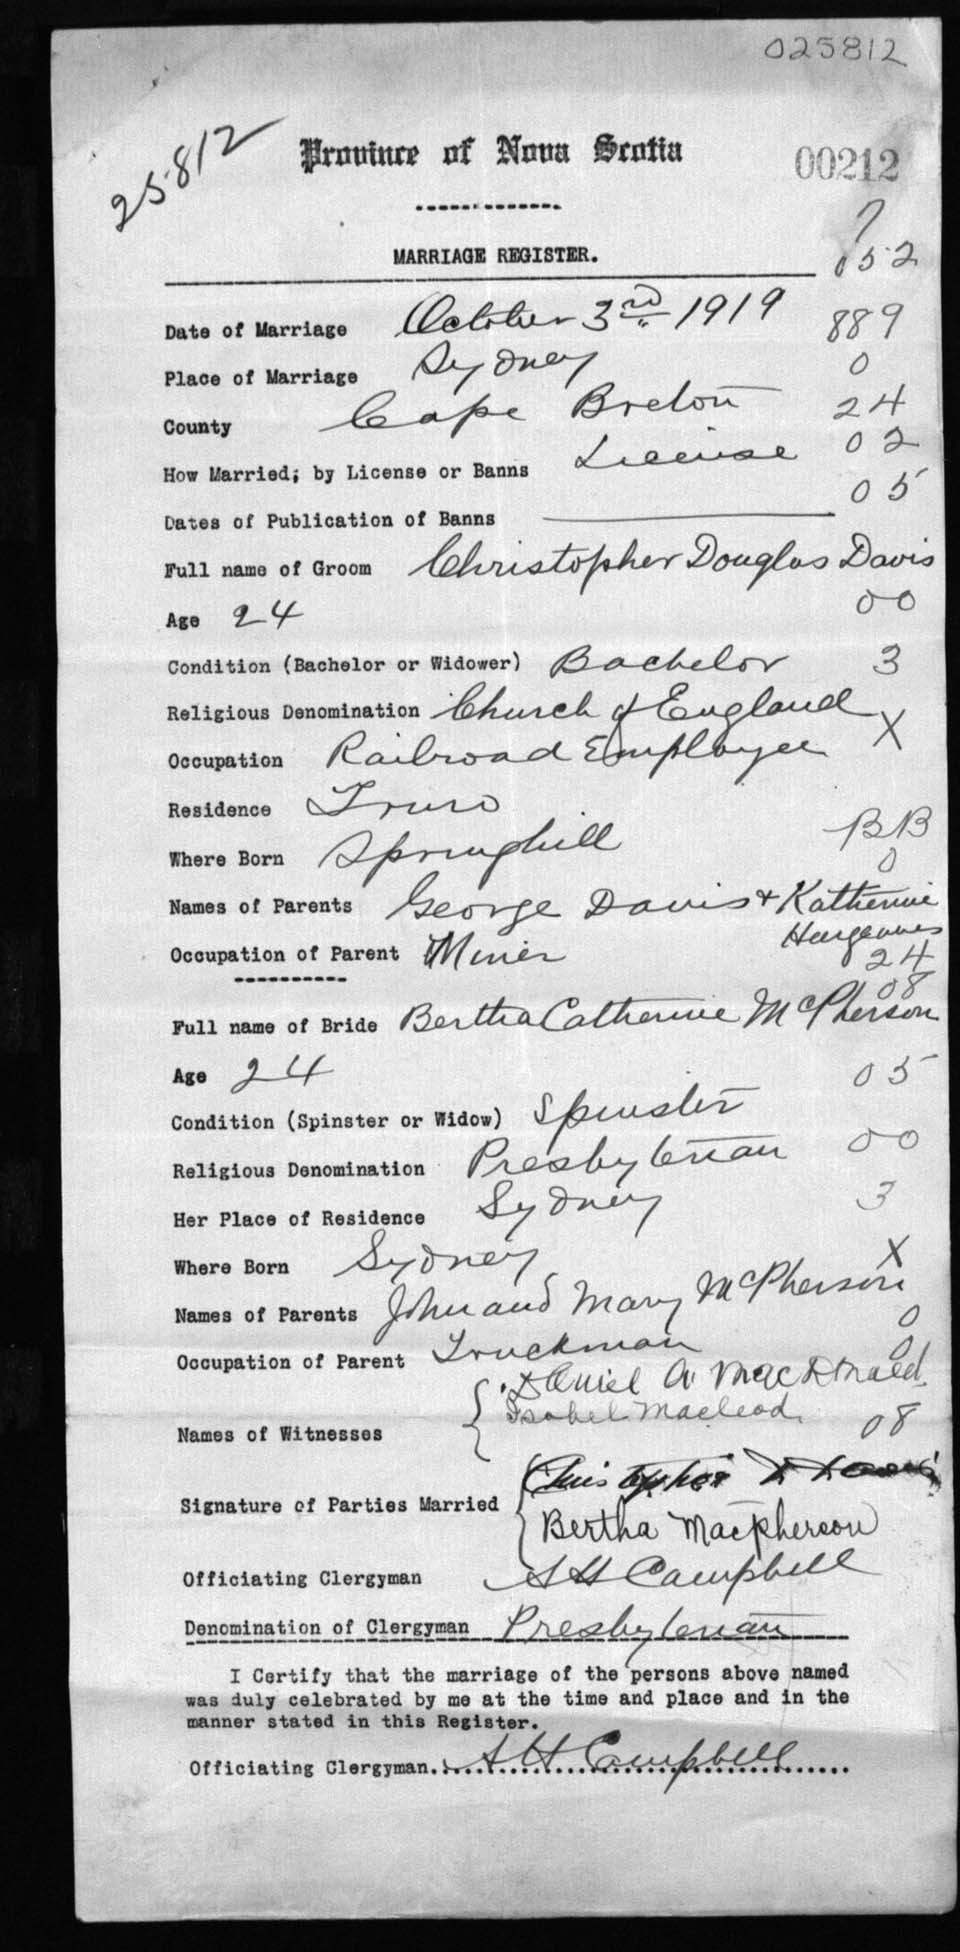 025812
25812
Province of Nova Scotia
00212
MARRIAGE REGISTER.
7
052
Date of Marriage October 3rd 1919 889
Place of Marriage Sydney 0
County Cape Breton 24
How Married; by License or Banns License 02
Dates of Publication of Banns 05
Full name of Groom Christopher Douglas Davis
Age 24 00
Condition (Bachelor or Widower) Bachelor 3
Religious Denomination Church of England X
Occupation Railroad Employee
Residence Truro
Where Born Springhill BB
0
Names of Parents George Davis + Katherine
Occupation of Parent Miner 24
08
Full name of Bride Bertha Catherine McPherson
Age 24 05
Condition (Spinster or Widow) Spinster
Religious Denomination Presbyterian 00
Her Place of Residence Sydney 3
Where Born Sydney X
Names of Parents John and Mary McPherson
0
Occupation of Parent Truckman 0
Daniel A. MacDonald.
Isobel Macleod.
Names of Witnesses 08
Christopher D Davis
Signature of Parties Married
Bertha Macpherson
Officiating Clergyman A H Campbell
Denomination of Clergyman Presbyterian
I Certify that the marriage of the persons above named
was duly celebrated by me at the time and place and in the
manner stated in this Register.
Officiating Clergyman. A H Campbell